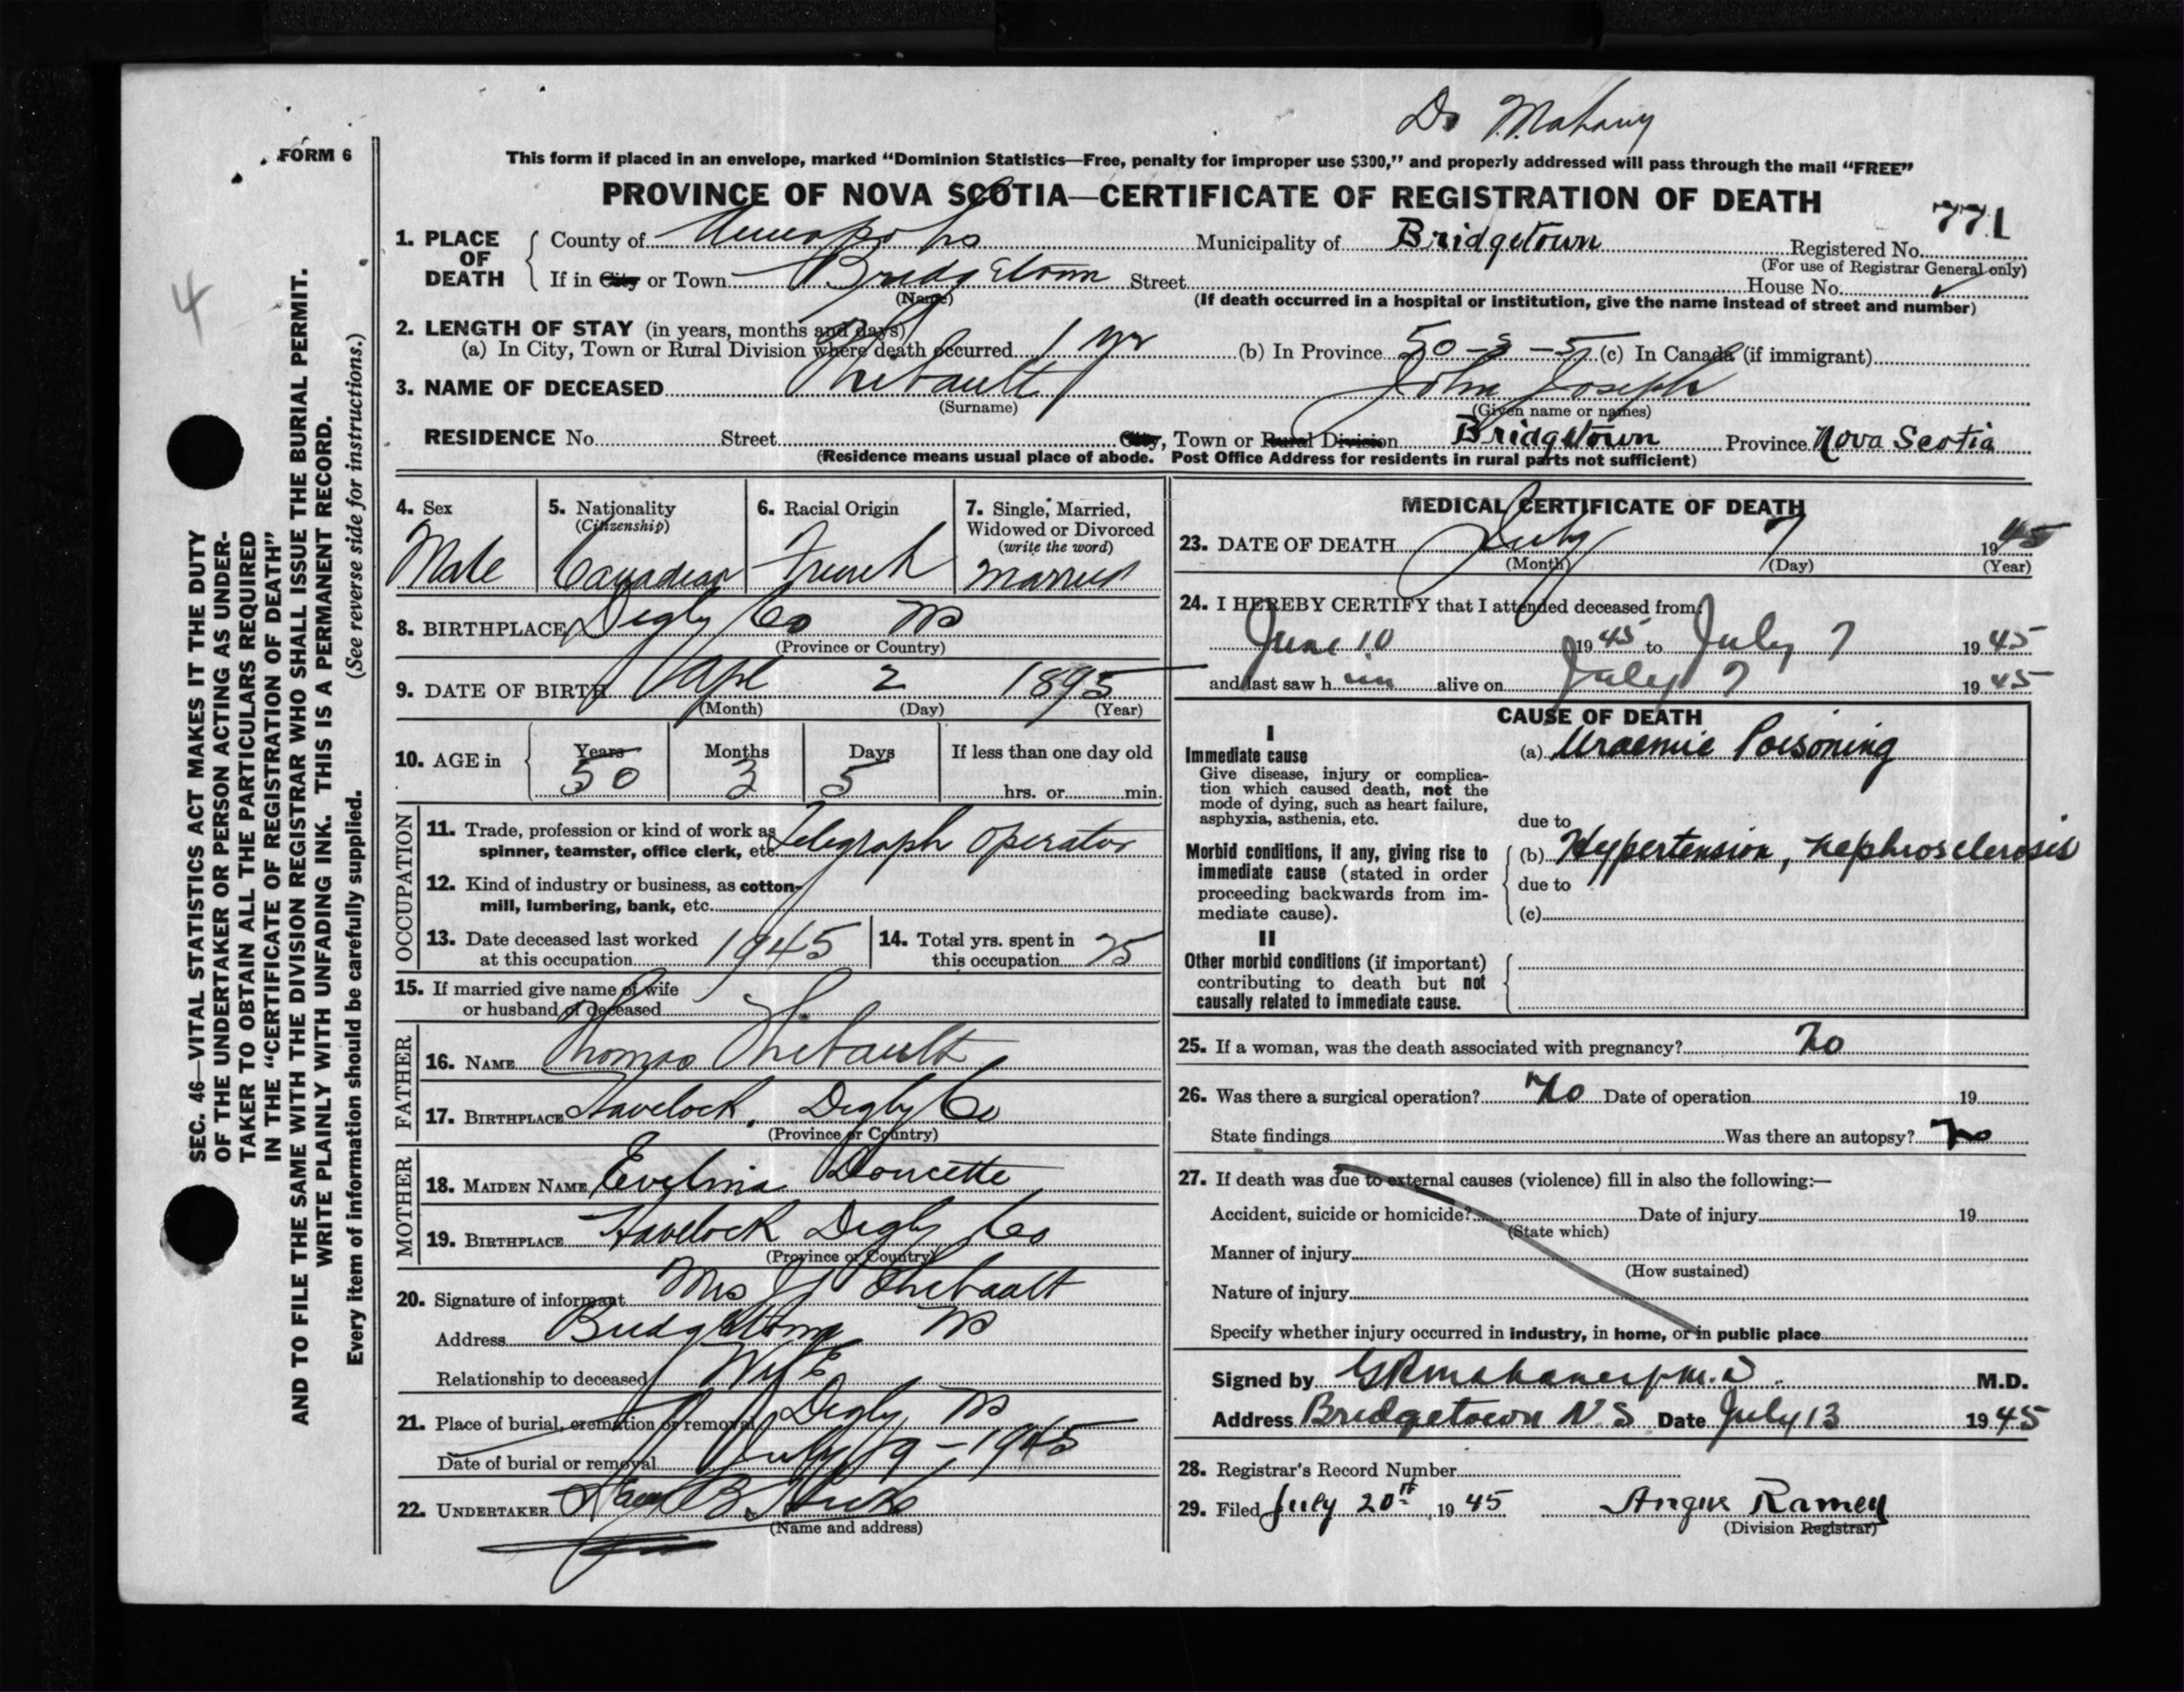 Dr Mahany
FORM 6
This form if placed in an envelope, marked “Dominion Statistics—Free, penalty for improper use $300,” and properly addressed will pass through the mail “FREE”
PROVINCE OF NOVA SCOTIA—CERTIFICATE OF REGISTRATION OF DEATH
771
1. PLACE OF DEATH County of Annapolis Municipality of Bridgetown Registered No.
(For use of Registrar General only)
If in City or Town Bridgetown Street House No.
(Name) (If death occurred in a hospital or institution, give the name instead of street and number)
2. LENGTH OF STAY (in years, months and days)
(a) In City, Town or Rural Division where death occurred 1 yr (b) In Province 50-3-5 (c) In Canada (if immigrant)
3. NAME OF DECEASED Thibault John Joseph
(Surname) (Given name or names)
RESIDENCE No. Street City, Town or Rural Division Bridgetown Province Nova Scotia
(Residence means usual place of abode. Post Office Address for residents in rural parts not sufficient)
4. Sex 5. Nationality (Citizenship) 6. Racial Origin 7. Single, Married, Widowed or Divorced (write the word)
Male Canadian French Married
8. BIRTHPLACE Digby Co NS
(Province or Country)
9. DATE OF BIRTH Apl 2 1895
(Month) (Day) (Year)
10. AGE in Years Months Days If less than one day old
50 3 5 hrs. or min.
OCCUPATION
11. Trade, profession or kind of work as spinner, teamster, office clerk, etc. Telegraph Operator
12. Kind of industry or business, as cotton-mill, lumbering, bank, etc.
13. Date deceased last worked at this occupation 1945 14. Total yrs. spent in this occupation 25
15. If married give name of wife or husband of deceased
FATHER
16. NAME Thomas Thibault
17. BIRTHPLACE Havelock, Digby Co
(Province or Country)
MOTHER
18. MAIDEN NAME Evelina Doucette
19. BIRTHPLACE Havelock Digby Co
(Province or Country)
20. Signature of informant Mrs J J Thibault
Address Bridgetown NS
Relationship to deceased Wife
21. Place of burial, cremation or removal Digby NS
Date of burial or removal July 9-1945
22. UNDERTAKER
(Name and address)
MEDICAL CERTIFICATE OF DEATH
23. DATE OF DEATH July 7 1945
(Month) (Day) (Year)
24. I HEREBY CERTIFY that I attended deceased from:
June 10 1945 to July 7 1945
and last saw him alive on July 7 1945
CAUSE OF DEATH
I
Immediate cause (a) Uraemic Poisoning
Give disease, injury or complica-
tion which caused death, not the
mode of dying, such as heart failure,
asphyxia, asthenia, etc. due to
Morbid conditions, if any, giving rise to (b) Hypertension, nephrosclerosis
immediate cause (stated in order
proceeding backwards from im- due to
mediate cause). (c)
II
Other morbid conditions (if important)
contributing to death but not
causally related to immediate cause.
25. If a woman, was the death associated with pregnancy? no
26. Was there a surgical operation? No Date of operation 19
State findings Was there an autopsy? no
27. If death was due to external causes (violence) fill in also the following:—
Accident, suicide or homicide? Date of injury 19
(State which)
Manner of injury
(How sustained)
Nature of injury
Specify whether injury occurred in industry, in home, or in public place
Signed by M.D.
Address Bridgetown N S Date July 13 1945
28. Registrar's Record Number
29. Filed July 20th 1945 Angus Ramey
(Division Registrar)
4
SEC. 46—VITAL STATISTICS ACT MAKES IT THE DUTY
OF THE UNDERTAKER OR PERSON ACTING AS UNDER-
TAKER TO OBTAIN ALL THE PARTICULARS REQUIRED
IN THE “CERTIFICATE OF REGISTRATION OF DEATH”
AND TO FILE THE SAME WITH THE DIVISION REGISTRAR WHO SHALL ISSUE THE BURIAL PERMIT.
WRITE PLAINLY WITH UNFADING INK. THIS IS A PERMANENT RECORD.
Every item of information should be carefully supplied. (See reverse side for instructions.)